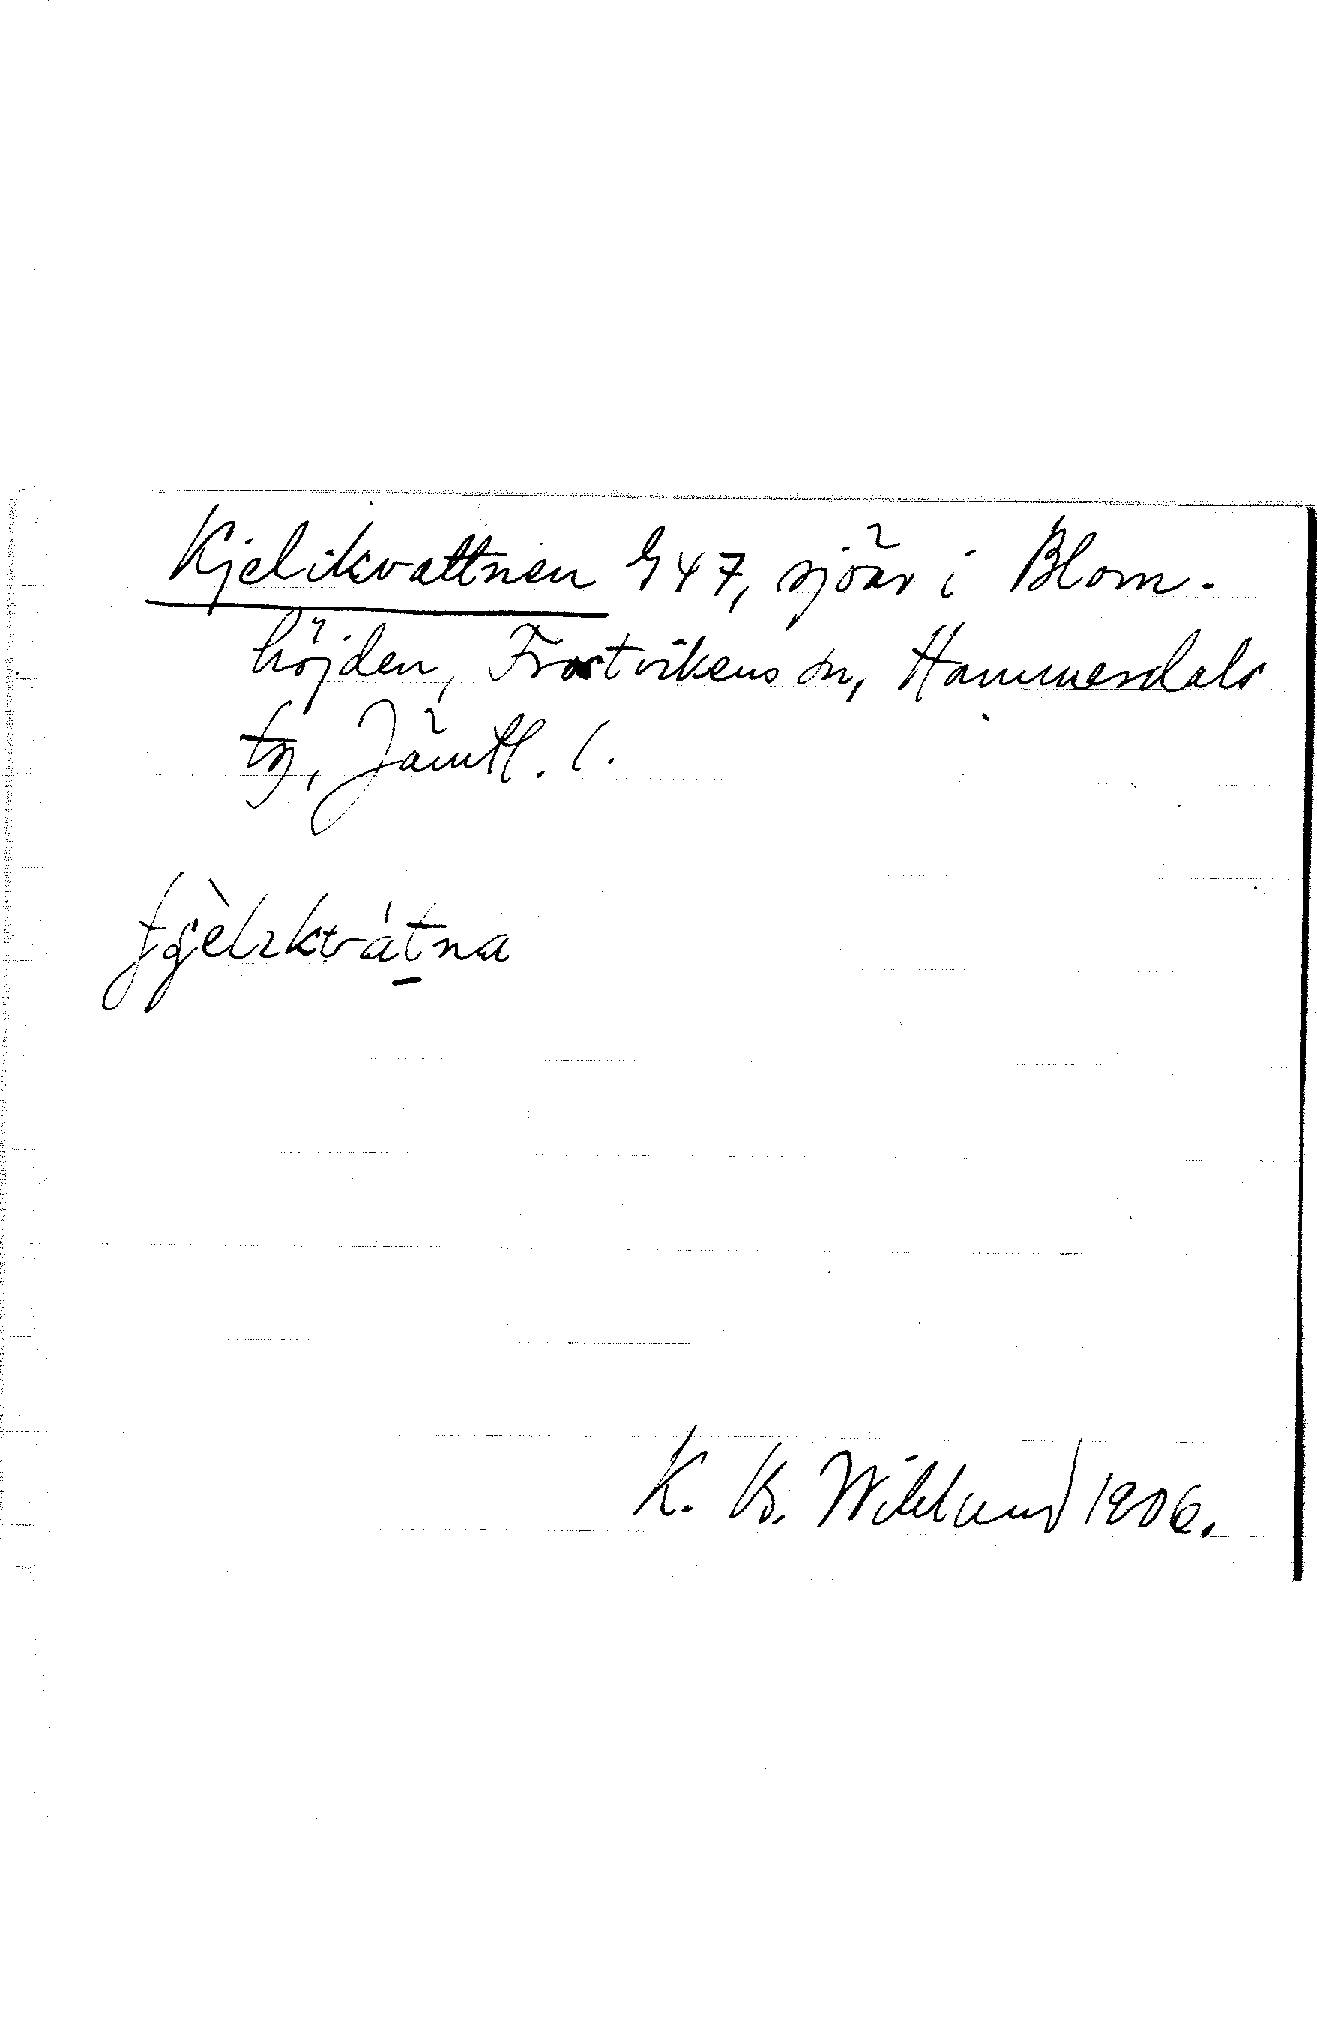 Kjelikvattnen G47, sjöar i Blom-
höjden, Frostvikens sn, Hammerdals
tg, Jämtl. l.
K. B. Wiklund 1906.